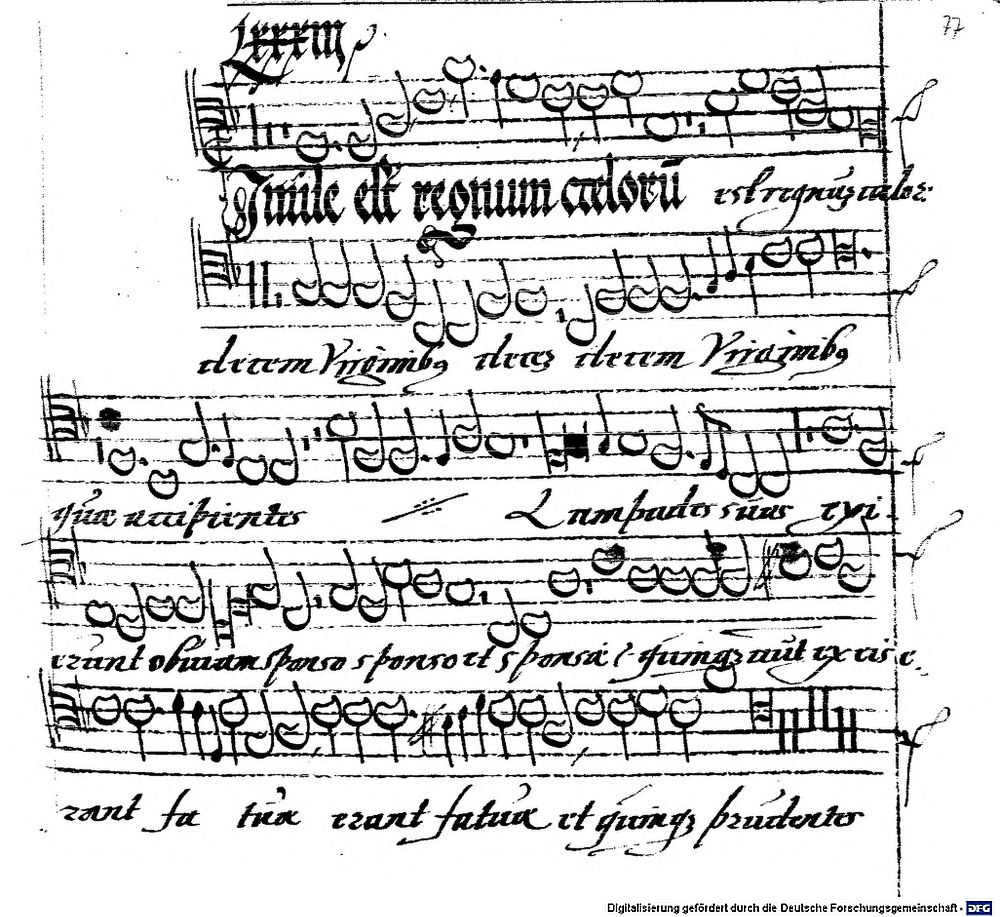 77
Lxxxiij
Simile est regnum cœlorū est regnuz cœlor:
decem Virginibꝫ decez decem Virginibꝫ
quæ accipientes Lampades suas exi
erunt obuiam sponso sponso et sponsæ quinqz aūt ex eis e
rant fa tuæ erant fatuæ et quinqz prudentes
Digitalisierung gefördert durch die Deutsche Forschungsgemeinschaft - DFG